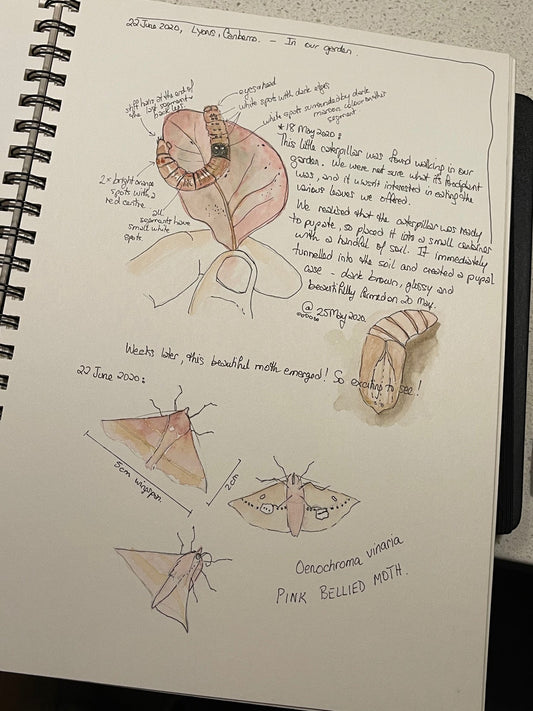 22 June 2020, Lyons, Canberra. - In our garden.
stiff hairs at the end of
the last segment +
back legs.
eyes + head
white spots with dark edges
white spots surrounded by dark
maroon colour on this
segment.
2 x bright orange
spots with a
red centre.
all
segments have
small white
spots.
* 18 May 2020:
This little caterpillar was found walking in our
garden. We were not sure what its foodplant
was, and it wasn't interested in eating the
various leaves we offered.
We realised that the caterpillar was ready
to pupate, so placed it into a small container
with a handful of soil. It immediately
tunnelled into the soil and created a pupal
case - dark brown, glossy and
beautifully formed on 20 May.
@ 25 May 2020.
Weeks later, this beautiful moth emerged! So exciting to see!
22 June 2020:
5cm wingspan.
2cm
Oenochroma vinaria
PINK BELLIED MOTH.